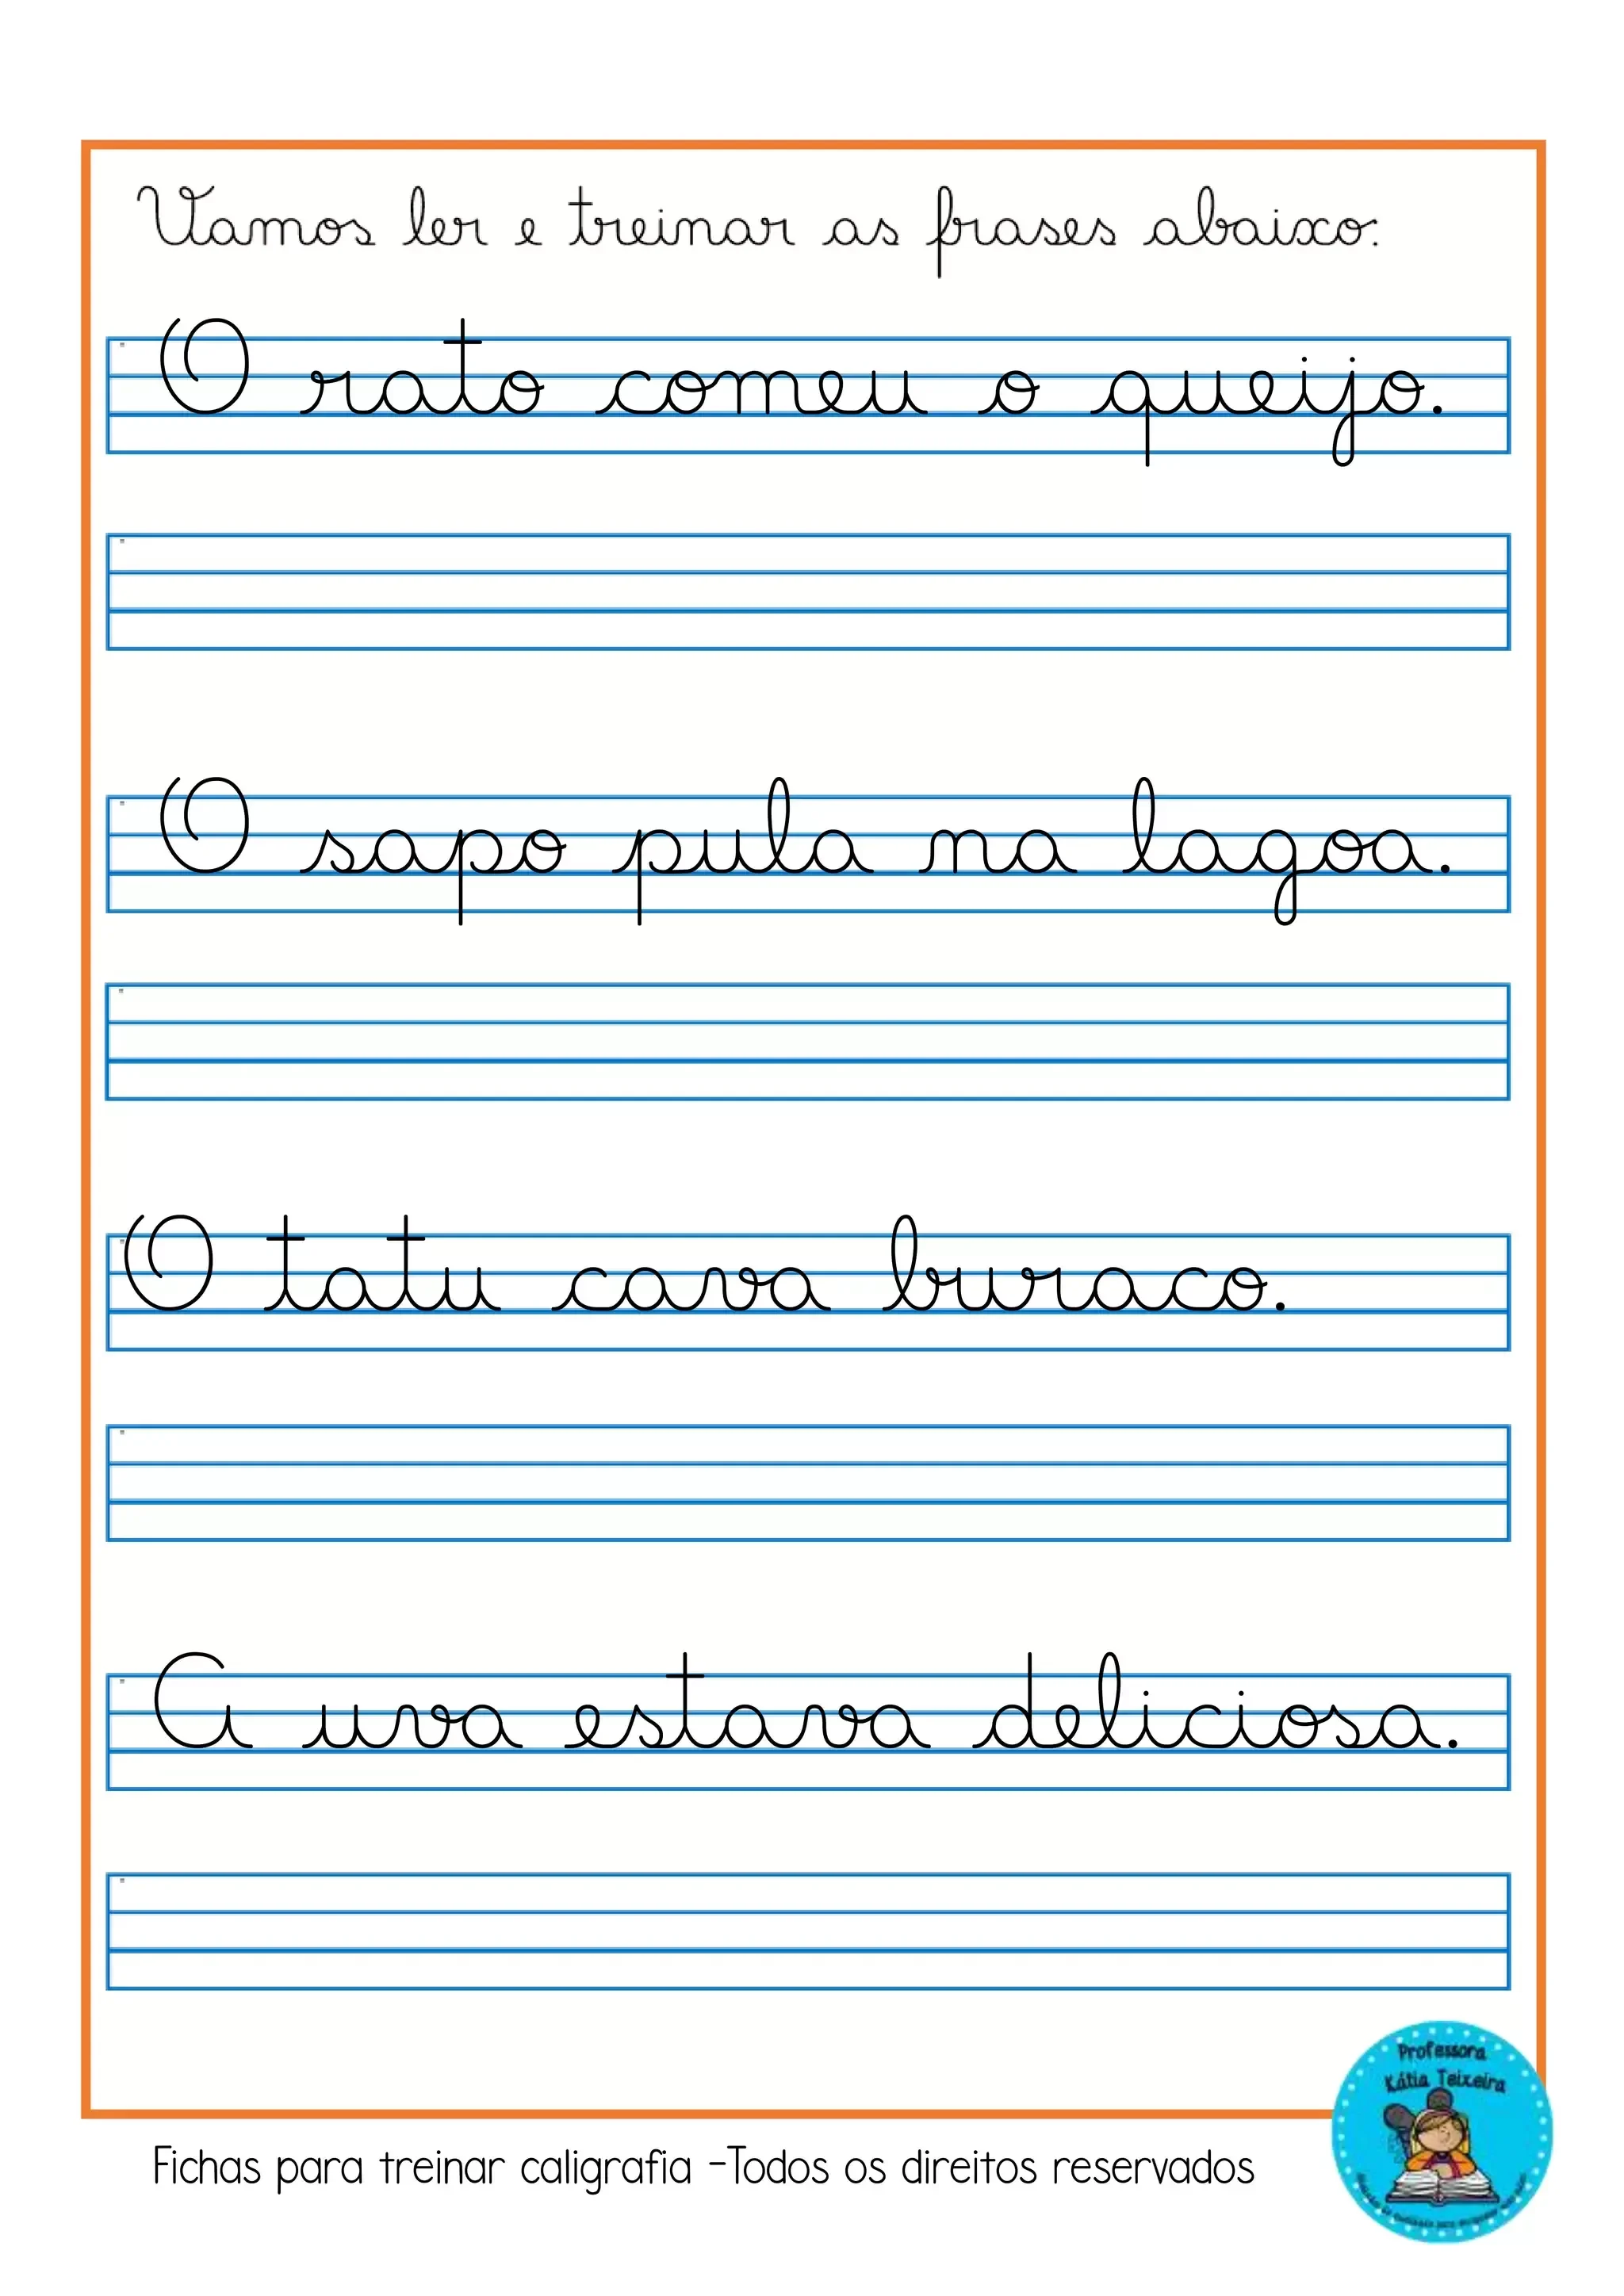 Vamos ler e treinar as frases abaixo:
O rato comeu o queijo.
O sapo pula na lagoa.
O tatu cava buraco.
A uva estava deliciosa.
Professora
Kátia Teixeira
Fichas para treinar caligrafia -Todos os direitos reservados